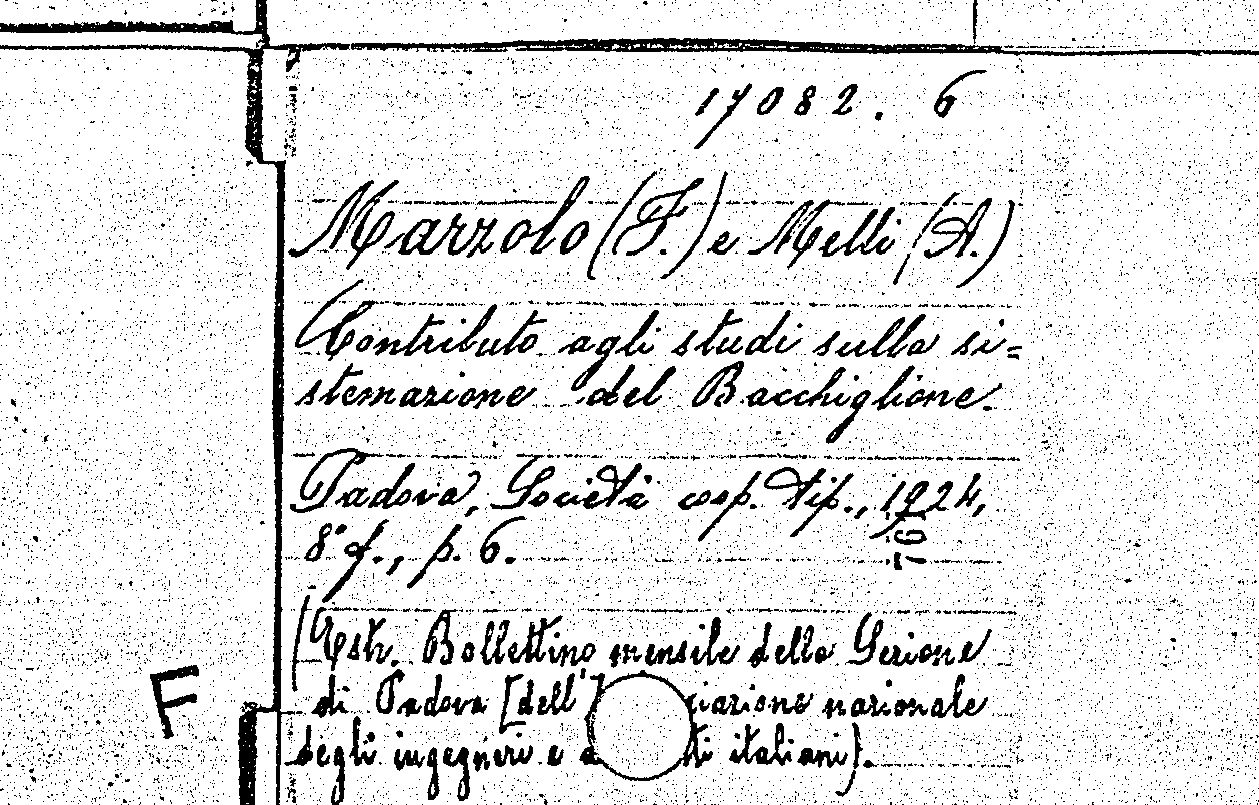 17082. 6
Marzolo (F.) e Melli (A.)
Contributo agli studi sulla si=
stemazione del Bacchiglione.
Padova, Società coop. tip., 1924,
8° f., p. 6.
(Estr. Bollettino mensile della Sezione
di Padova [dell' ciazione nazionale
F
degli ingegneri e a ti italiani).